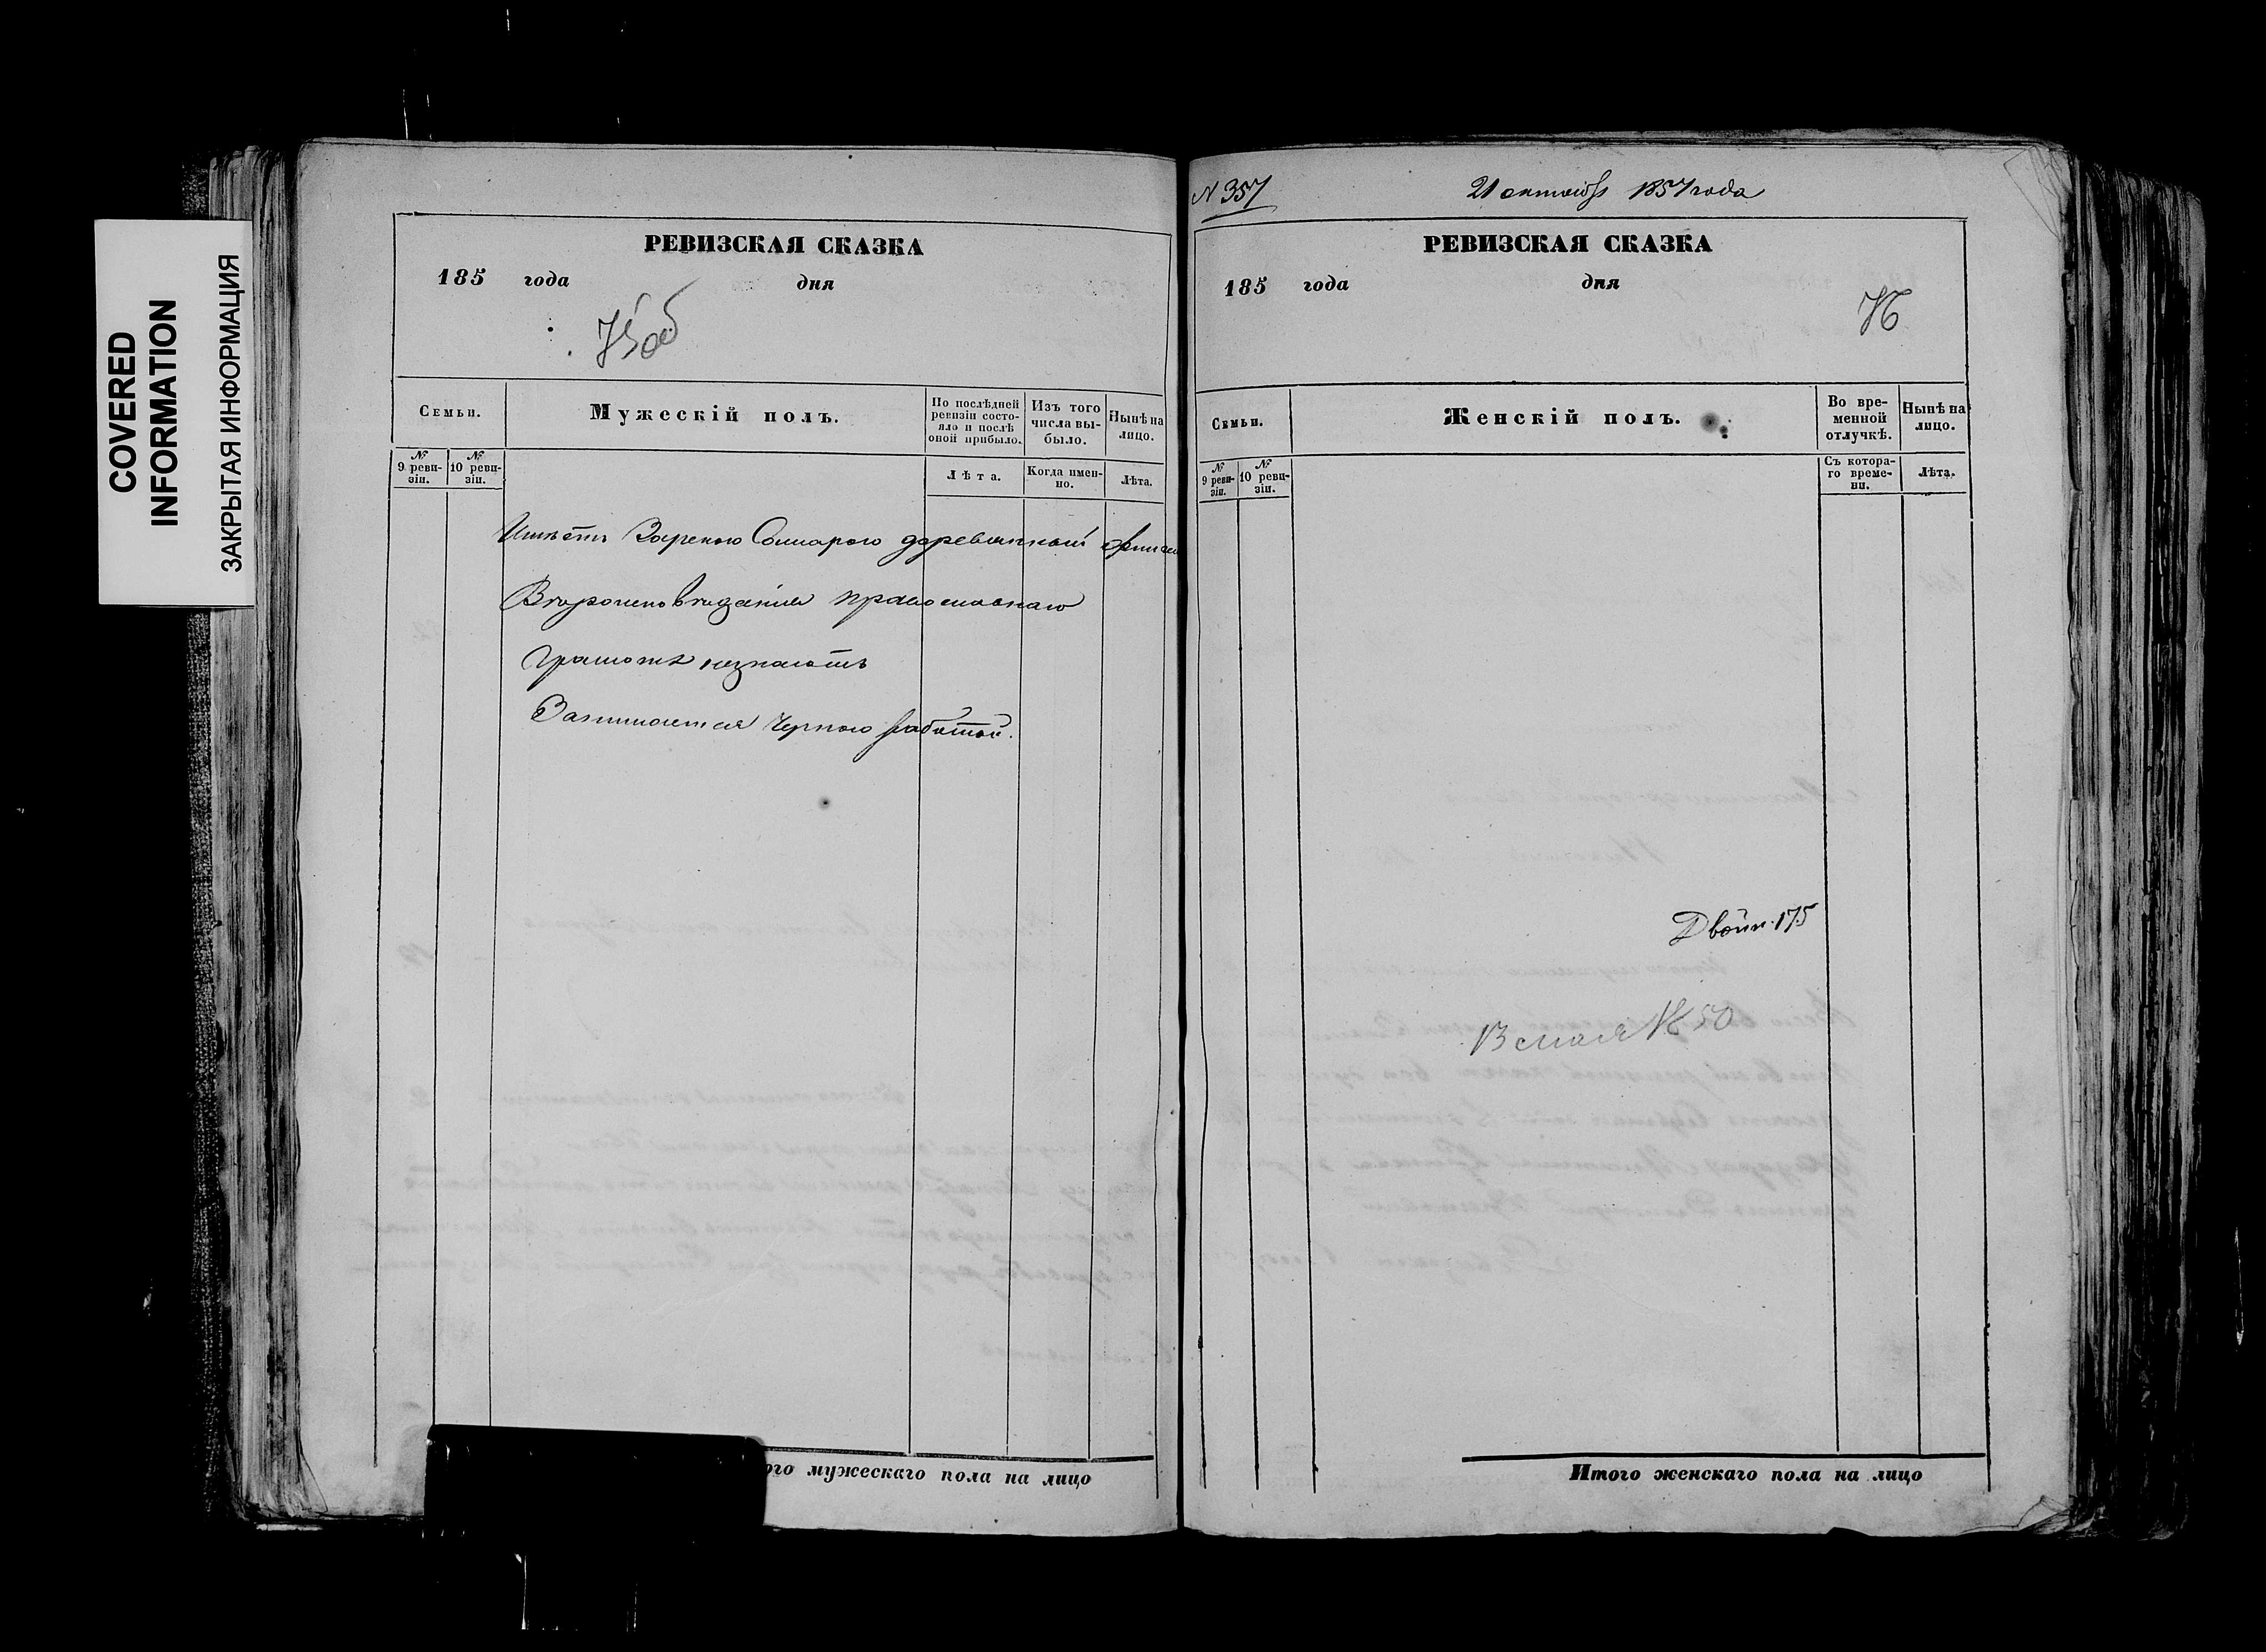 COVERED
INFORMATION
ЗАКРЫТАЯ ИНФОРМАЦИЯ
РЕВИЗСКАЯ СКАЗКА
185 года дня
75 об
Семьи.
Мужескій полъ.
По послѣдней ревизіи состояло и послѣ оной прибыло.
Изъ того числа выбыло.
Нынѣ на лицо.
№ 9 ревизіи.
№ 10 ревизіи.
Лѣта.
Когда именно.
Лѣта.
Имѣетъ Зарекою деревянный
православнаго
Грамотѣ незнаютъ
Занимается Черною работой.
ого мужескаго пола на лицо
N 357
21 октября 1857 года
РЕВИЗСКАЯ СКАЗКА
185 года дня
76
Семьи.
Женскій полъ.
Во временной отлучкѣ.
Нынѣ на лицо.
№ 9 ревизіи.
№ 10 ревизіи.
Съ котораго времени.
Лѣта.
Двойн. 175
13 мая 1850
Итого женскаго пола на лицо